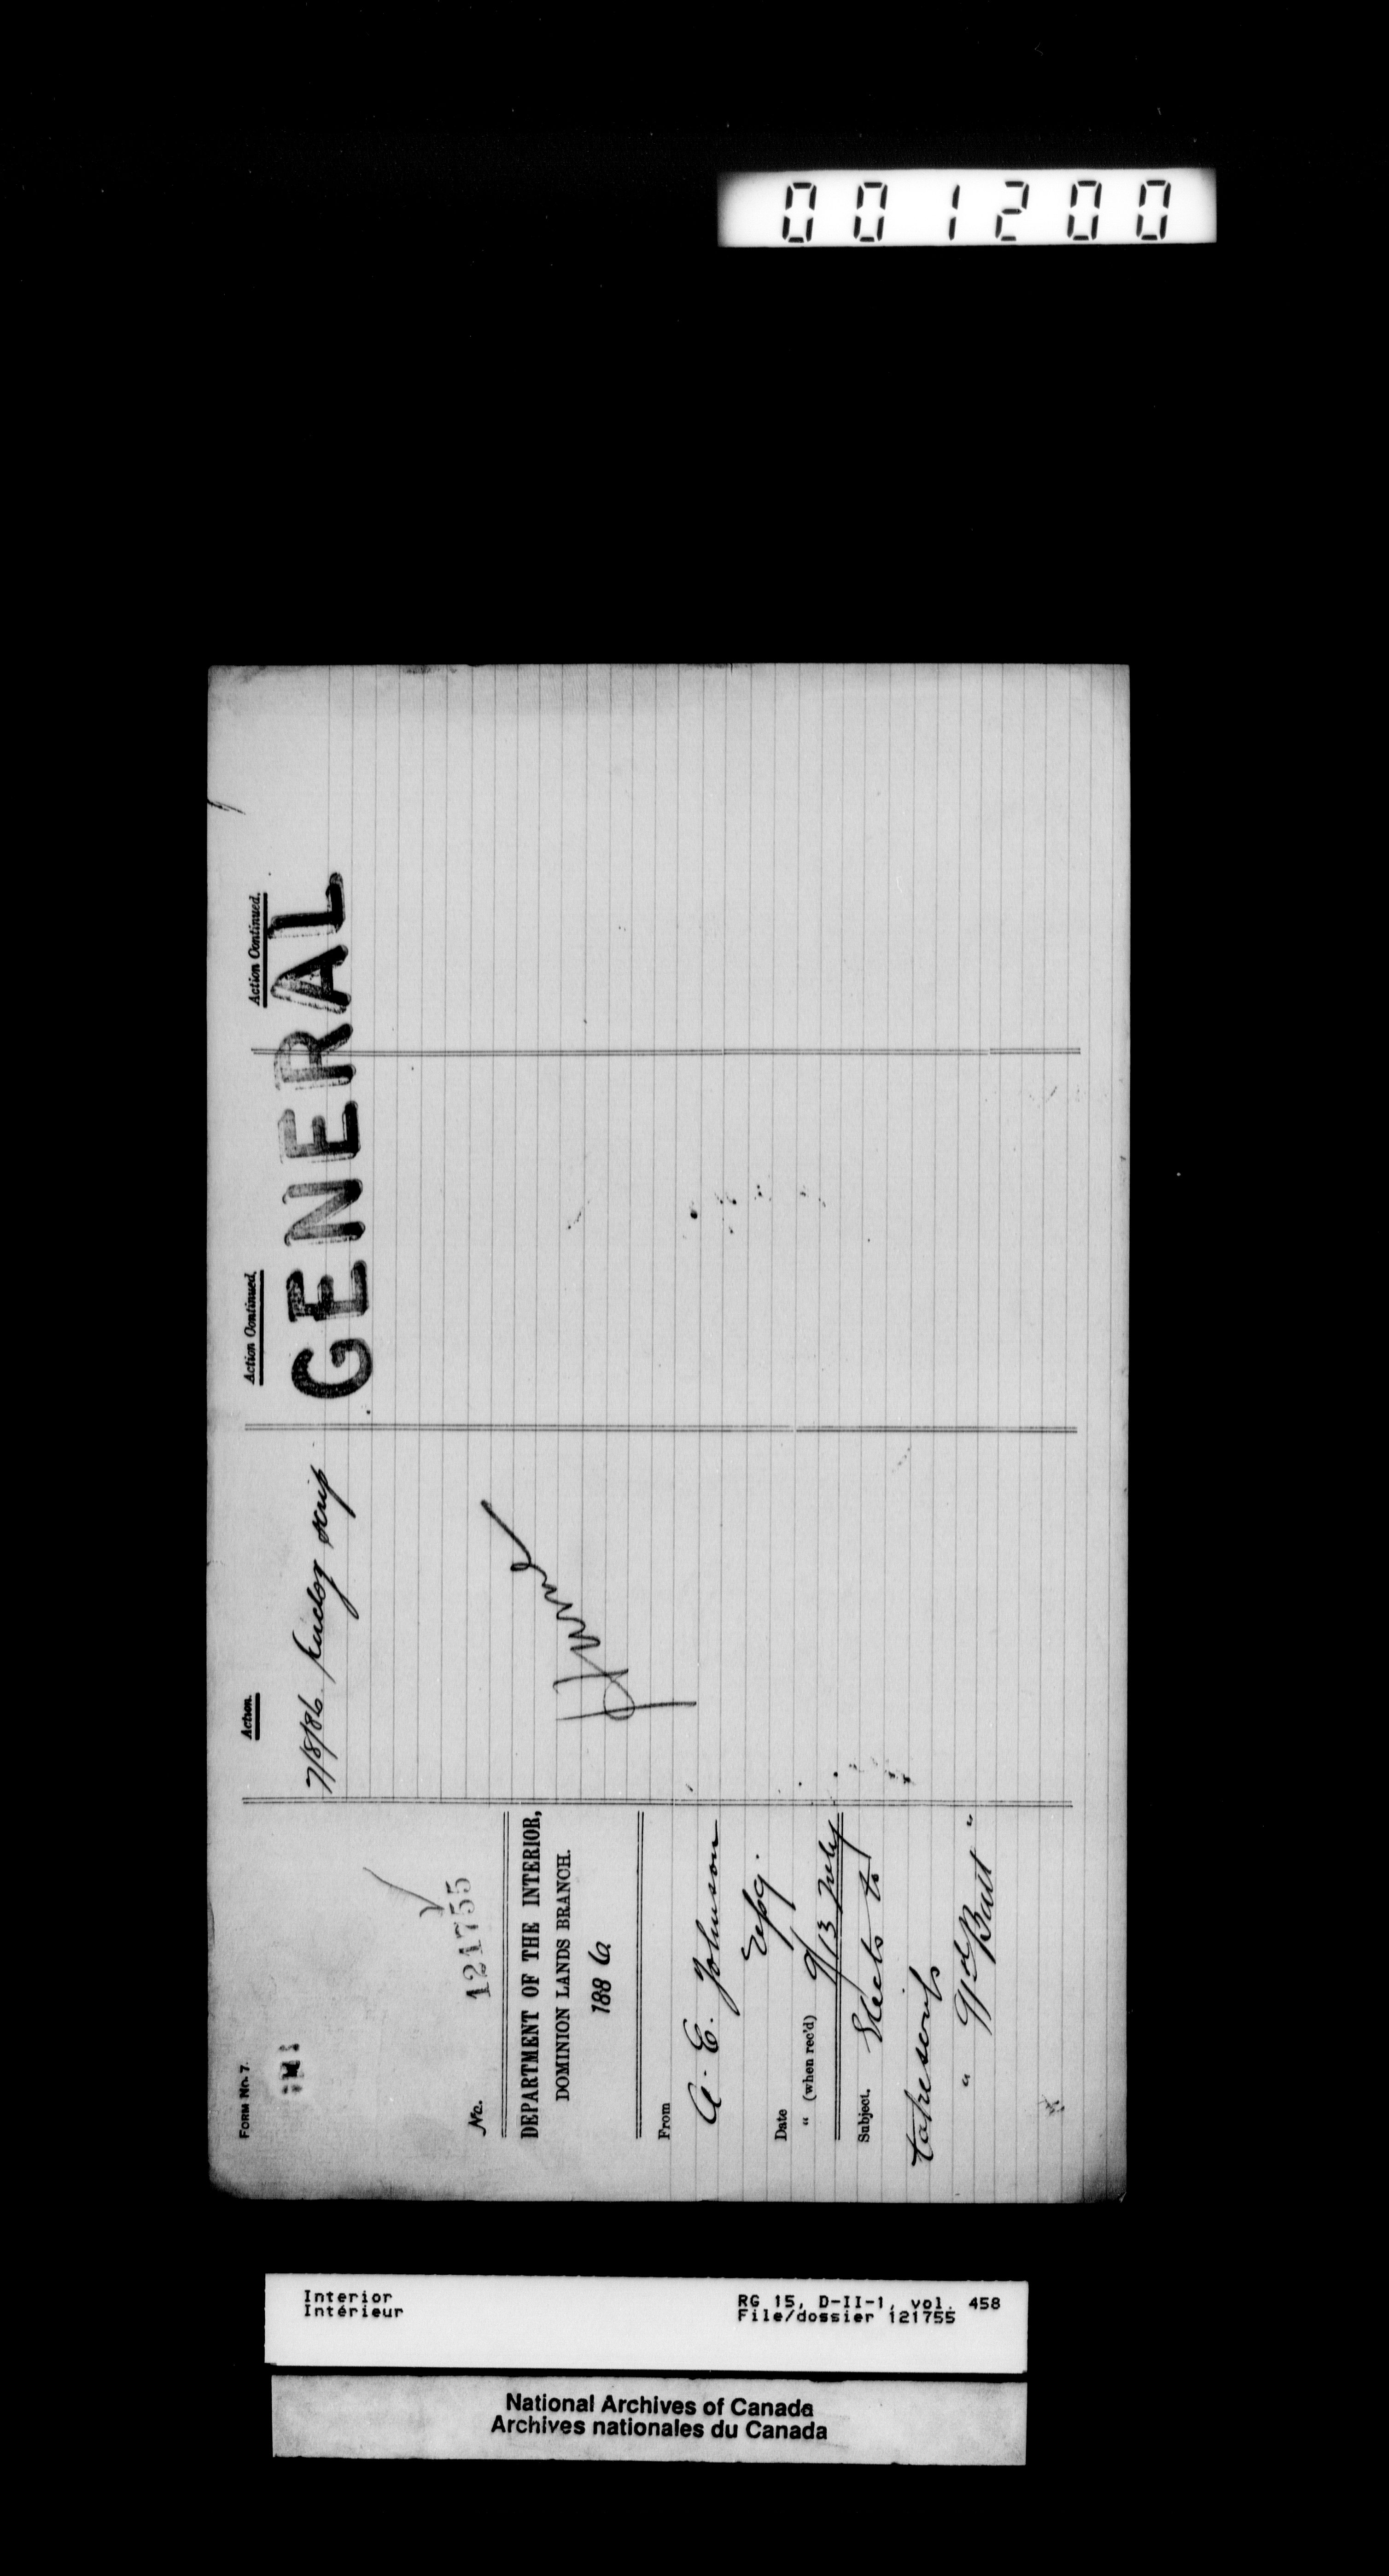 001200
FORM No. 7.
No. 121755
DEPARTMENT OF THE INTERIOR,
DOMINION LANDS BRANCH.
1886
From
A. E. Johnson
Esq.
Date 9
" (when rec'd) 13 July
Subject. Elects to
take scrip
" "
Action.
7/8/86. scrip
Action Continued.
Action Continued.
GENERAL
Interior
Intérieur
RG 15, D-II-1, vol. 458
File/dossier 121755
National Archives of Canada
Archives nationales du Canada